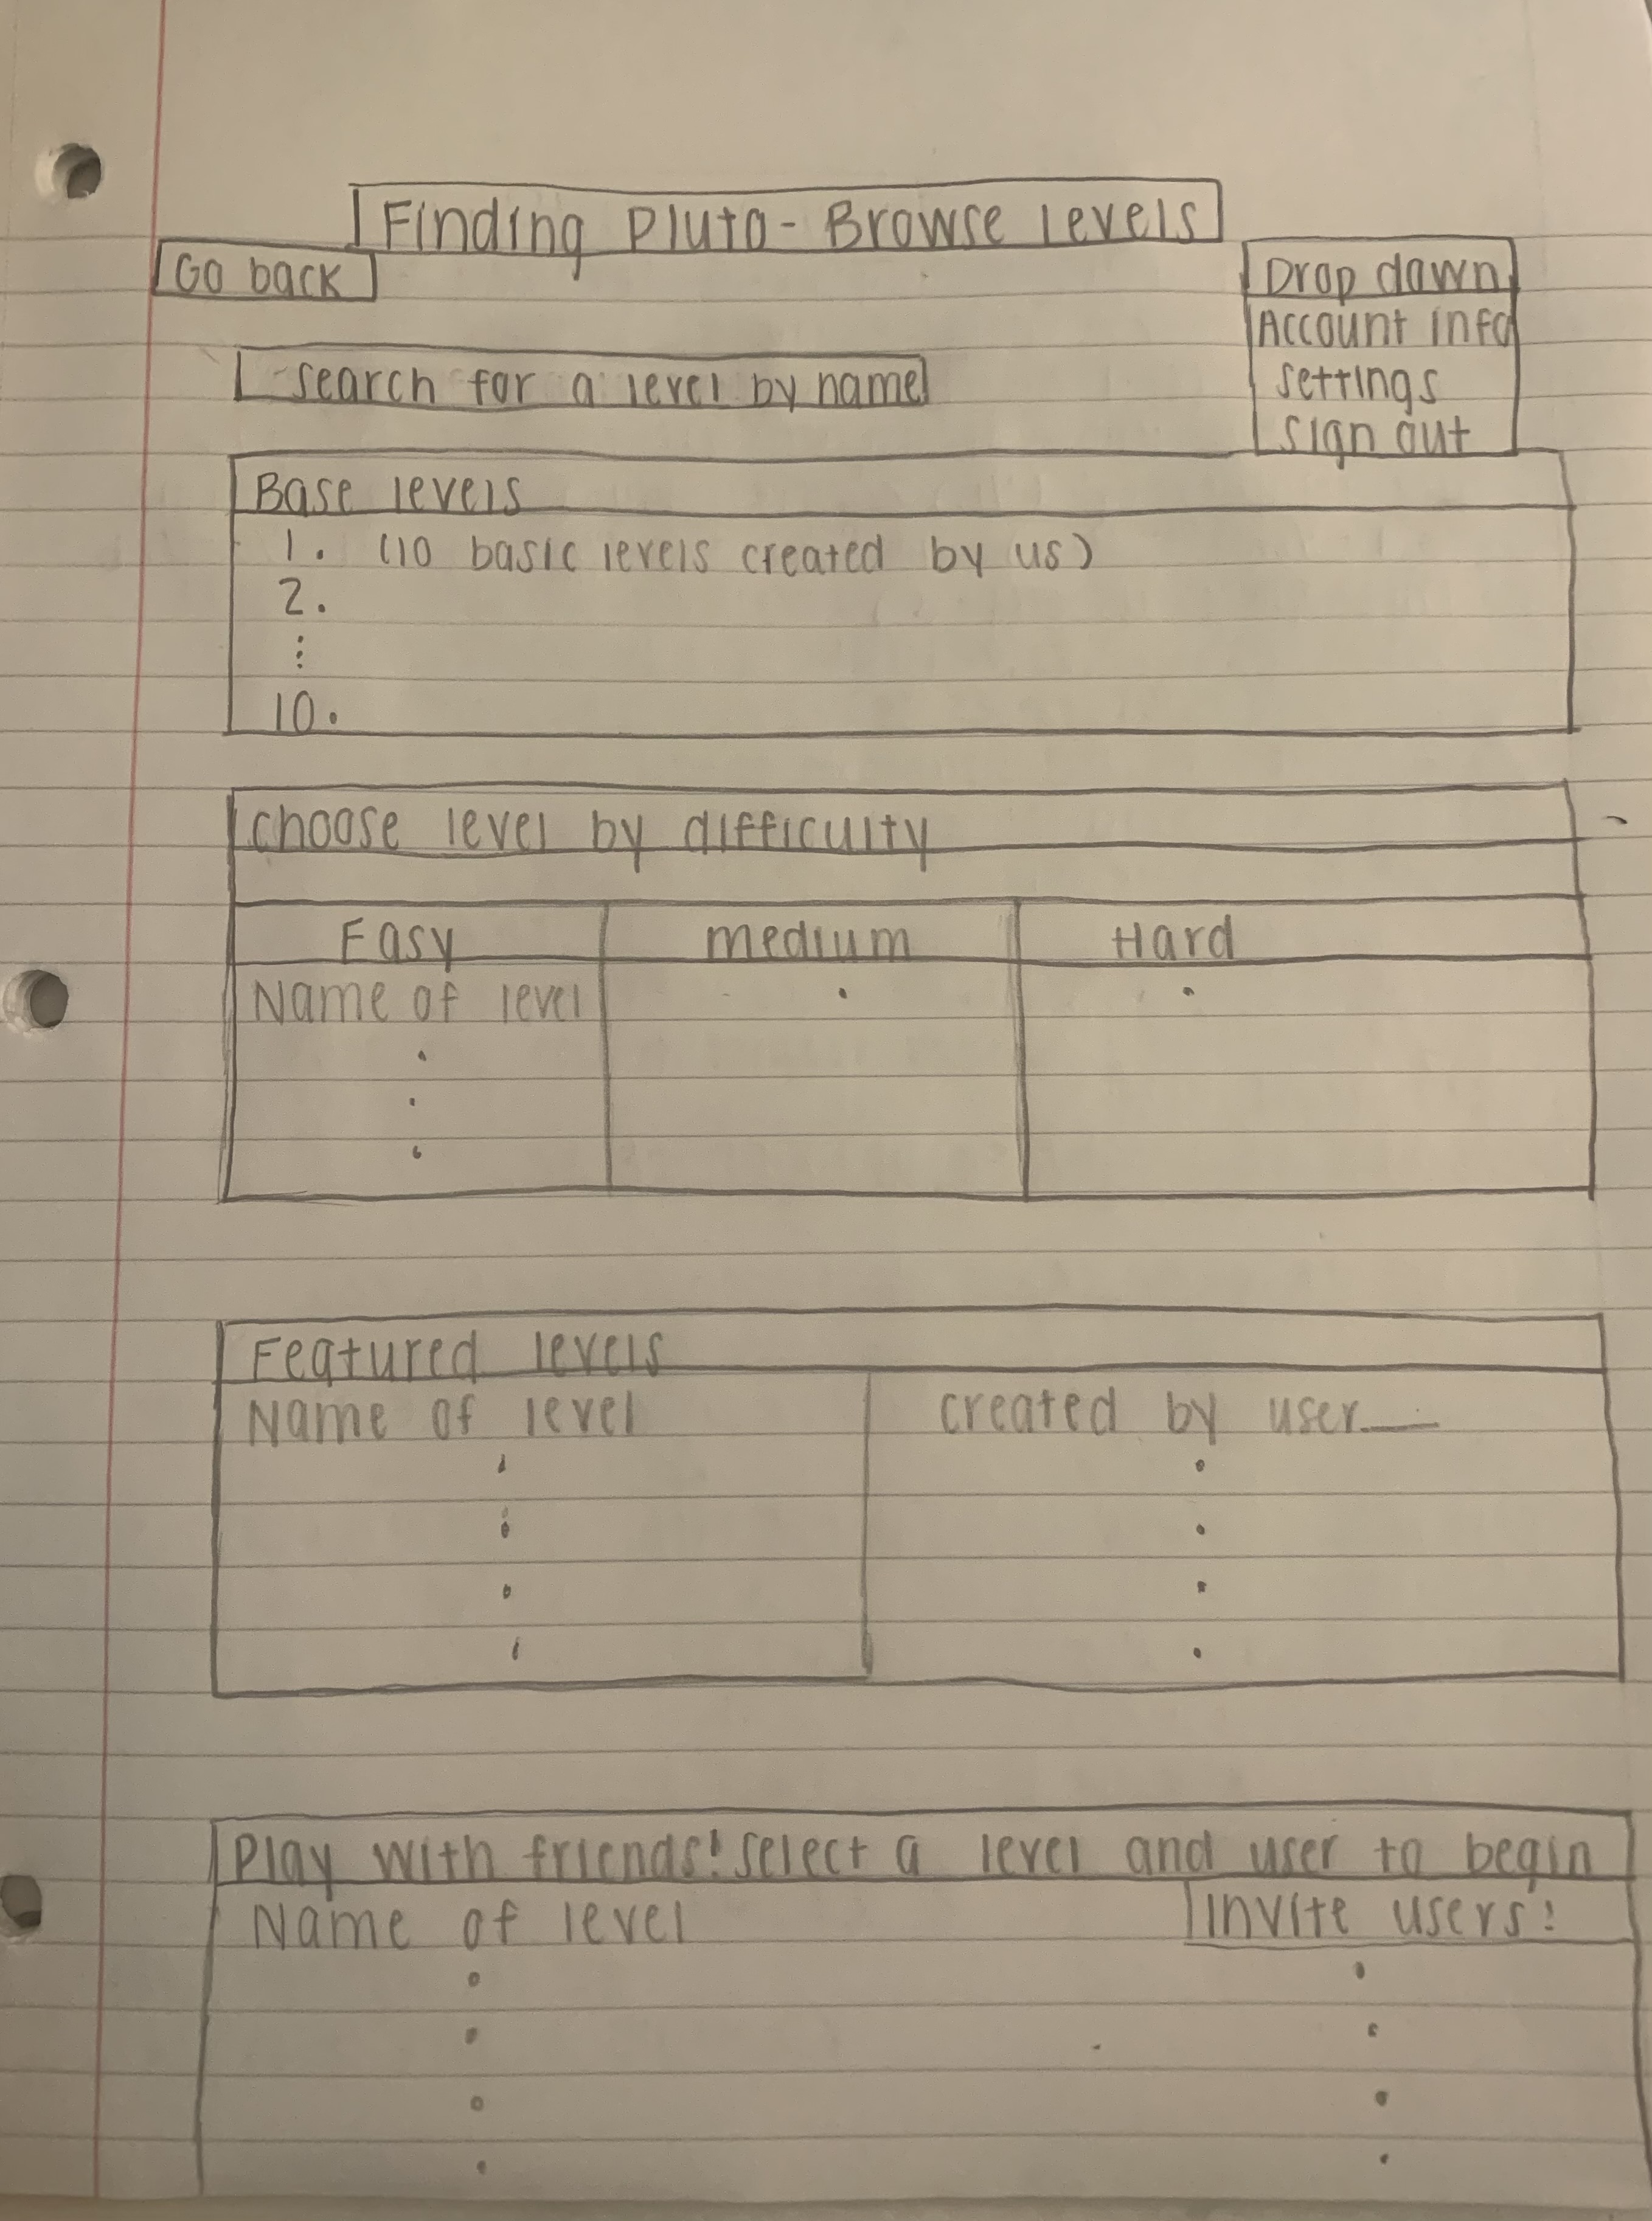 Finding Pluto - Browse Levels
Go back
Drop down
Account info
settings
sign out
search for a level by name
Base levels
1. (10 basic levels created by us)
2.
⋮
10.
choose level by difficulty
Easy medium Hard
Name of level
Featured levels
Name of level created by user___
Play with friends! select a level and user to begin
Name of level Invite users!